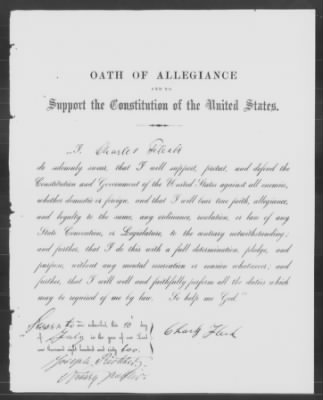 OATH OF ALLEGIANCE
AND TO
Support the Constitution of the United States.
I, Charles
do solemnly swear, that I will support, protect, and defend the
Constitution and Government of the United States against all enemies,
whether domestic or foreign, and that I will bear true faith, allegiance,
and loyalty to the same, any ordinance, resolution, or law of any
State Convention, or Legislature, to the contrary notwithstanding;
and further, that I do this with a full determination, pledge, and
purpose, without any mental reservation or evasion whatsoever; and
further, that I will well and faithfully perform all the duties which
may be required of me by law. So help me God.
to and subscribed this 10 day
of July in the year of our Lord
one thousand eight hundred and sixty two.
Joseph
Notary Public